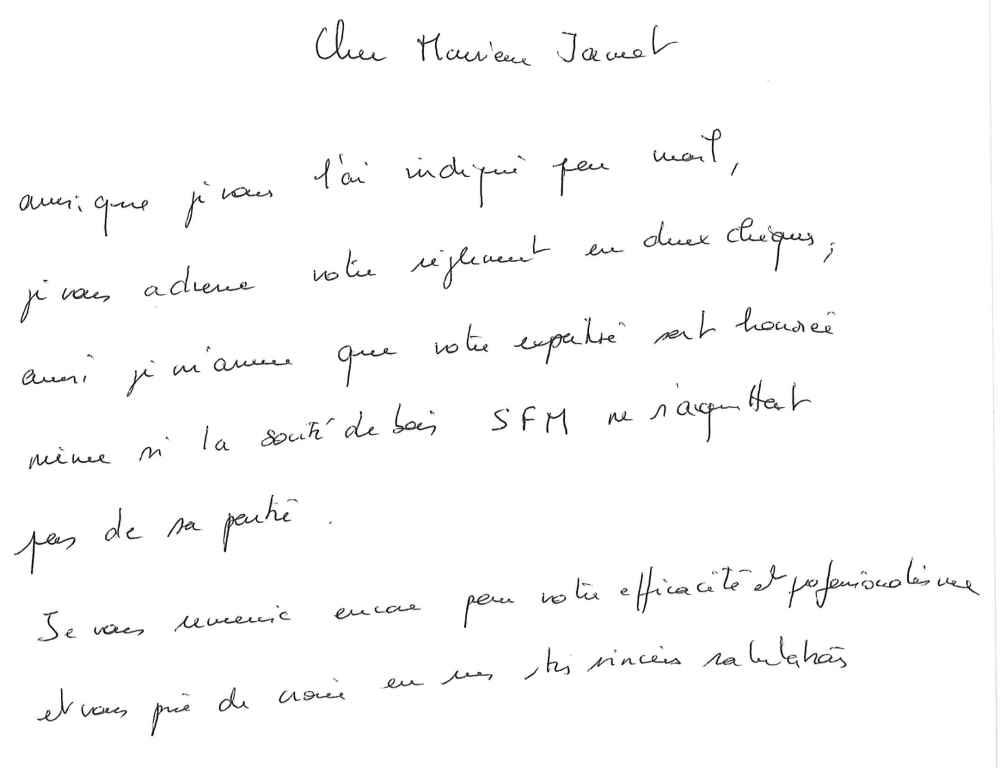 Cher Monsieur Jamet
ainsi que je vous l'ai indiqué par mail,
je vous adresse votre règlement en deux chèques,
ainsi je m'assure que votre expertise soit honorée
même si la société de bois SFM ne s'acquittait
pas de sa partie.
Je vous remercie encore pour votre efficacité et professionnalisme
et vous prie de croire en mes très sincères salutations